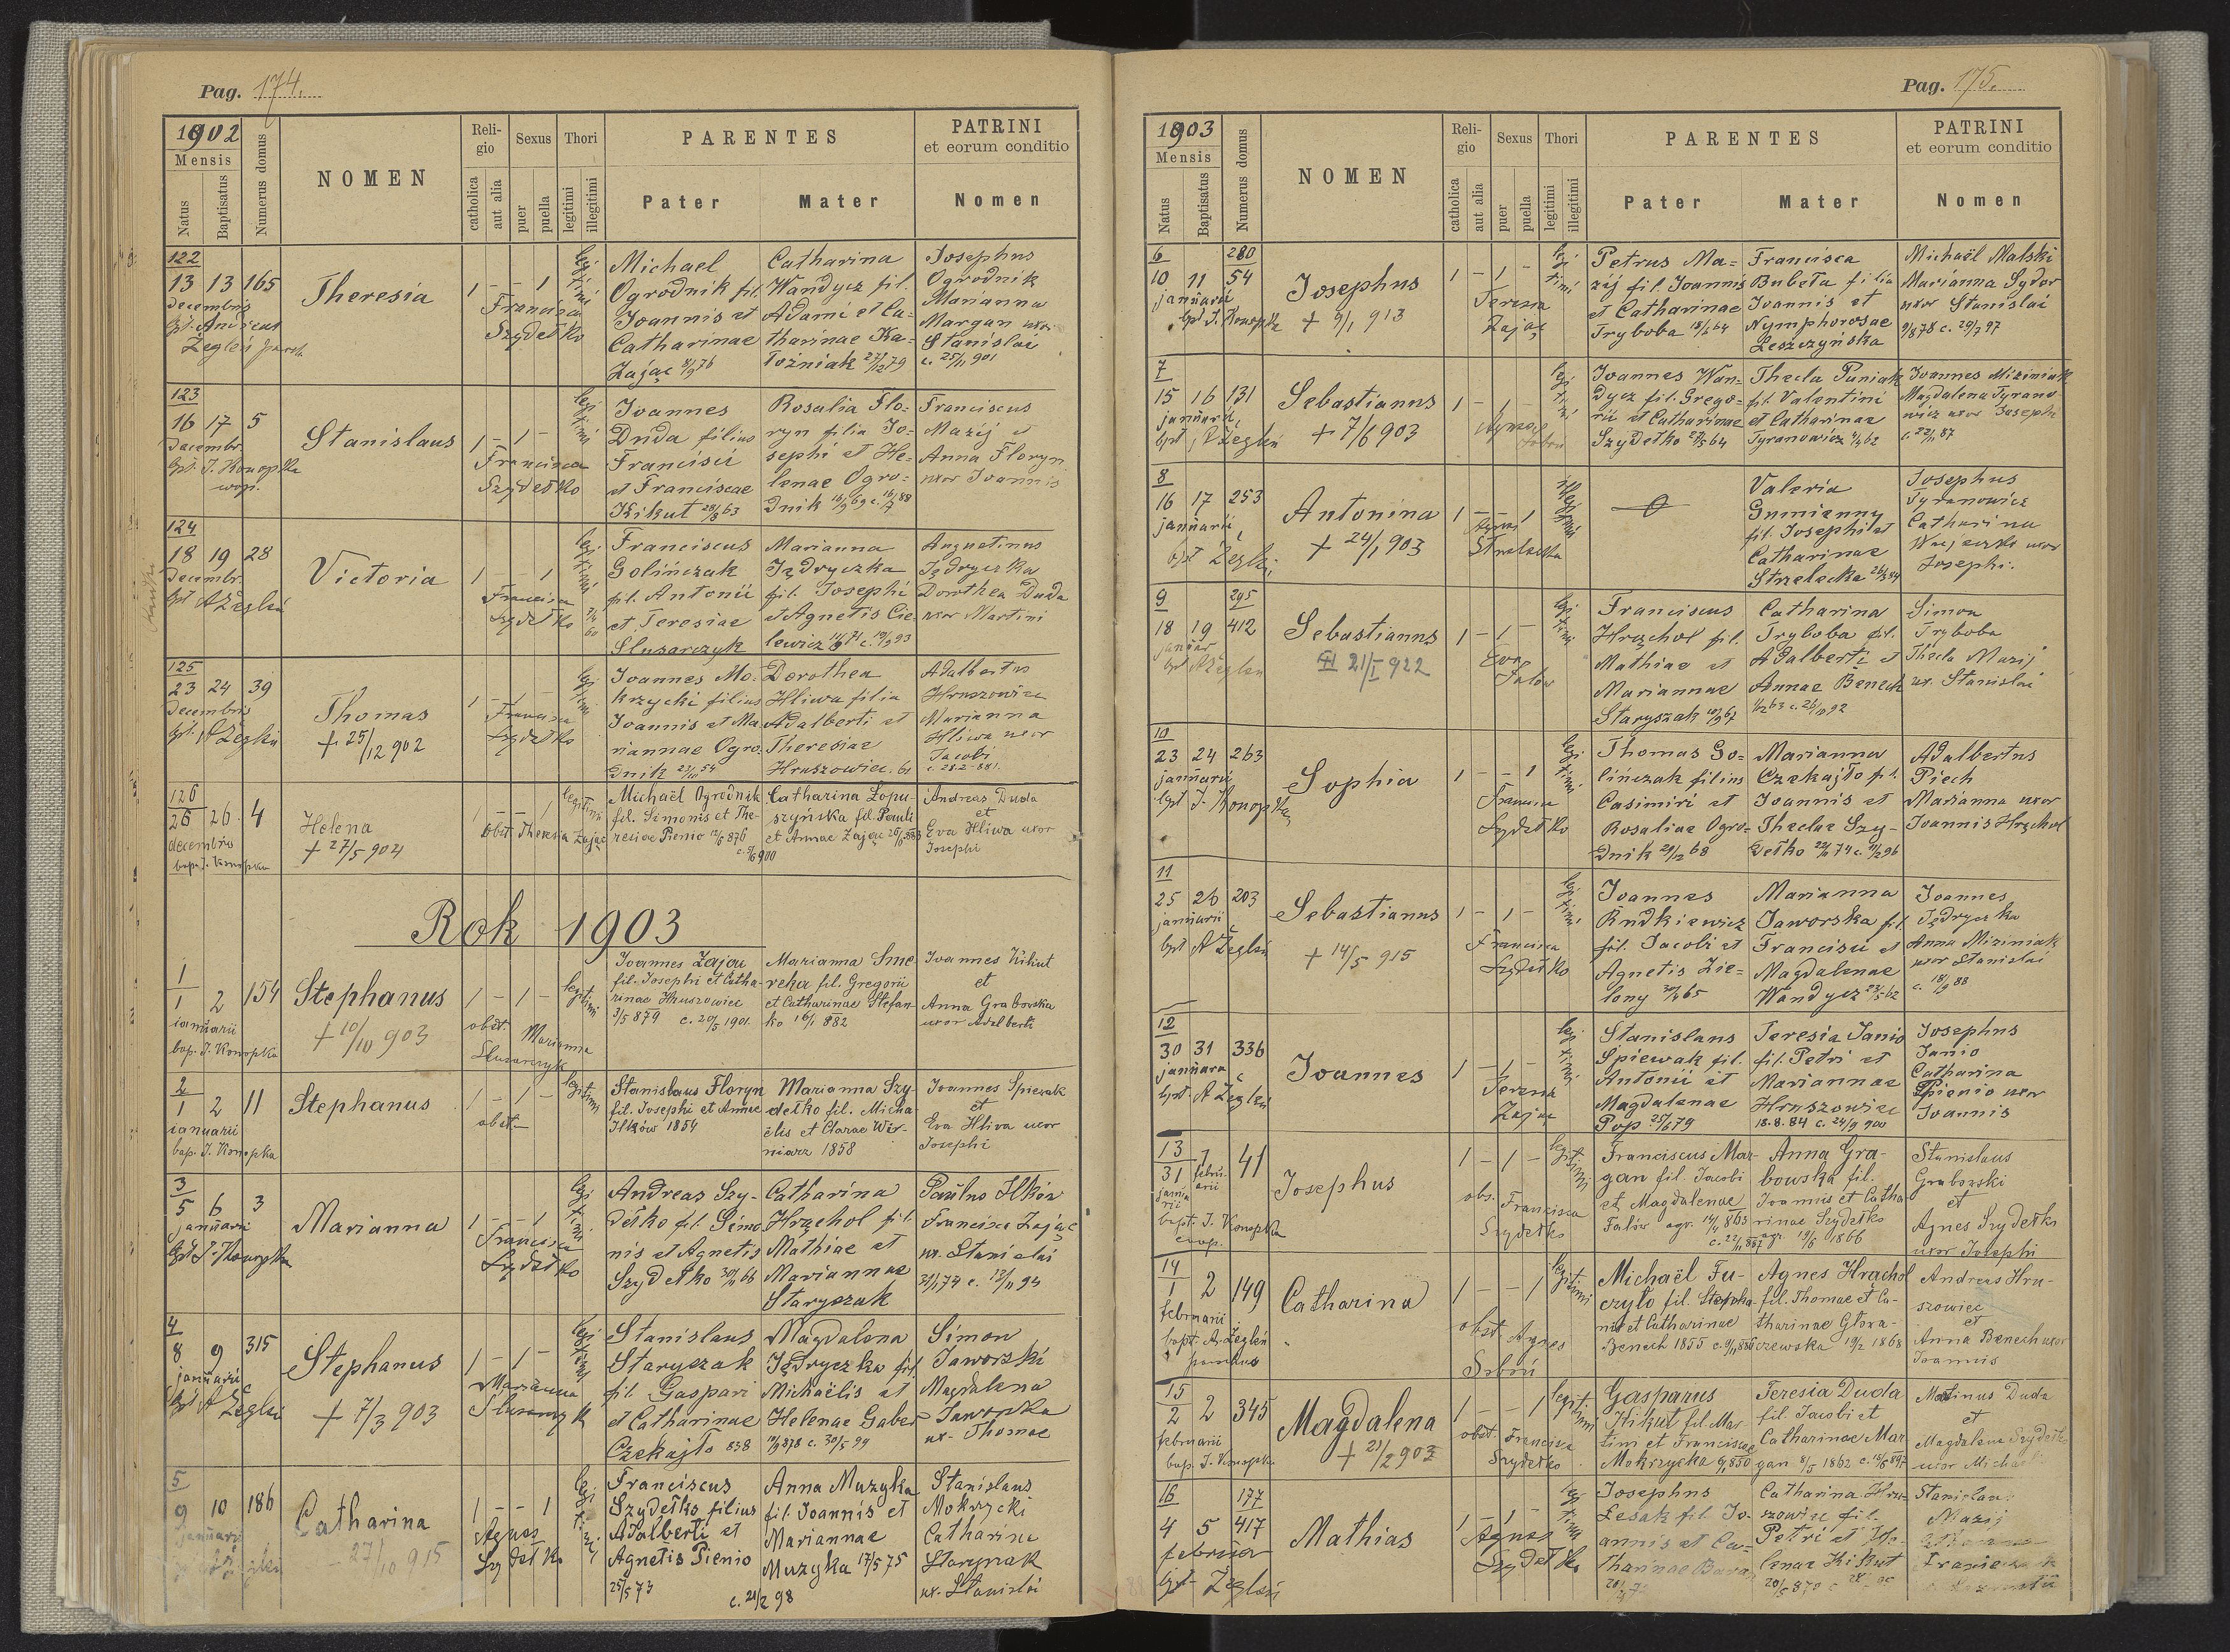 Pag. 174.
1902
Mensis
Natus
Baptisatus
Numerus domus
NOMEN
Religio
catholica
aut alia
Sexus
puer
puella
Thori
legitimi
illegitimi
PARENTES
Pater
Mater
PATRINI
et eorum conditio
Nomen
122
13 13 165
decembris
Theresia
1 - - 1
Francisca
Szydełko
legitimi
Michael
Ogrodnik fil.
Joannis et
Catharinae
Zając 8/9 76
Catharina
Wandycz fil.
Adami et Ca-
tharinae Ka-
łożniak 27/12 79
Josephus
Ogrodnik
Marianna
Margan uxor
Stanislai
c. 25/11 901
123
16 17 5
decembr.
bpt. J. Konopka
Stanislaus
1 - 1 -
Francisca
Szydełko
legitimi
Joannes
Duda filius
Francisci
et Franciscae
Kikut 28/8 63
Rosalia Flo-
ryn filia Jo-
sephi et He-
lenae Ogro-
dnik
Franciscus
Mazij et
Anna Floryn
uxor Joannis
124
18 19 28
decembr.
bpt A Żegleń
Victoria
1 - - 1
Francisca
Szydełko
legitimi
Franciscus
Golińczak
fil. Antonii
et Teresiae
Slusarczyk
Marianna
Jędryczka
fil. Josephi
et Agnetis Cie-
lewicz
Augustinus
Jędryczka
Dorothea Duda
uxor Martini
125
23 24 39
decembris
bpt. A Żegleń
Thomas
+ 25/12 902
1 - 1 -
Francisca
Szydełko
legitimi
Joannes Mo-
krzycki filius
Joannis et Ma-
riannae Ogro-
dnik
Dorothea
Hliwa filia
Adalberti et
Theresiae
Hruszowiec
Adalbertus
Hruszowiec
Marianna
Hliwa uxor
Jacobi
c. 28-2-881.
126
26 26 4
decembris
bap. J. Konopka
Helena
+ 27/5 904
1 - - 1
obst. Theresia Zając
legitimi
Michaël Ogrodnik
fil. Simonis et The-
resiae Pienio 12/6 876
Catharina Łopu-
szyńska fil. Pauli
et Annae Zając
c. 5/6 900
Andreas Duda
et
Eva Hliwa uxor
Josephi
Rok 1903
1
1 2 154
ianuarii
bap. J. Konopka
Stephanus
+ 10/10 903
1 - 1 -
obst. Marianna
Slusarczyk
legitimi
Joannes Zając
fil. Josephi et Catha-
rinae Hruszowiec
3/5 879 c. 20/5 1901.
Marianna Sme-
reka fil. Gregorii
et Catharinae Stefan-
ko 16/1 882
Joannes Kikut
et
Anna Grabowska
uxor Adalberti
2
1 2 11
ianuarii
bap. J. Konopka
Stephanus
1 - 1 -
obst
legitimi
Stanislaus Floryn
fil. Josephi et Annae
Ilków 1854
Marianna Szy-
dełko fil. Micha-
ëlis et Clarae Wer-
niarz 1858
Joannes Spiewak
et
Eva Hliwa uxor
Josephi
3
5 6 3
januarii
bpt J. Konopka
Marianna
1 - - 1
Francisca
Szydełko
legitimi
Andreas Szy-
dełko fil. Simo-
nis et Agnetis
Szydełko 30/11 66
Catharina
Hrząchol fil.
Mathiae et
Mariannae
Staryszak
Paulus Ilków
Francisca Zając
ux. Stanislai
4
8 9 315
januarii
bpt A Żegleń
Stephanus
+ 7/3 903
1 - 1 -
Marianna
Slusarczyk
legitimi
Stanislaus
Staryszak
fil. Gaspari
et Catharinae
Czekajło 858
Magdalena
Jędryczka fil.
Michaëlis et
Helenae Gaber
10/9 878 c. 30/5 99
Simon
Jaworski
Magdalena
Jaworska
ux. Thomae
5
9 10 186
januarii
Catharina
27/10 915
1 - - 1
Agnes
Szydełko
legitimi
Franciscus
Szydełko filius
Adalberti et
Agnetis Pienio
25/5 73
Anna Muzyka
fil. Joannis et
Mariannae
Muzyka 17/5 75
c. 21/2 98
Stanislaus
Mokrzycki
Catharina
Staryszak
ux. Stanislai
Pag. 175.
1903
Mensis
Natus
Baptisatus
Numerus domus
NOMEN
Religio
catholica
aut alia
Sexus
puer
puella
Thori
legitimi
illegitimi
PARENTES
Pater
Mater
PATRINI
et eorum conditio
Nomen
6 280
10 11 54
januarii
bpt J. Konopka
Josephus
+ 9/1 913
1 - 1 -
Teresia
Zając
legitimi
Petrus Ma-
zij fil. Joannis
et Catharinae
Tryboba 18/6 64
Francisca
Bubeła filia
Joannis et
Nymphorosae
Leszczyńska
Michaël Malski
Marianna Sydor
uxor Stanislai
9/878 c. 20/7 97
7
15 16 131
januarii
bpt A Żegleń
Sebastianus
+ 7/6 903
1 - 1 -
legitimi
Joannes Wan-
dycz fil. Grego-
rii et Catharinae
Szydełko
Thecla Puniak
fil. Valentini
et Catharinae
Tyranowicz
Joannes Miziniak
Magdalena Tyrano-
wicz uxor Josephi
c. 22/11 87
8
16 17 253
januarii
bpt Żegleń
Antonina
+ 24/1 903
1 - - 1
Strzelecka
illegitimi
Valeria
Gumienny
fil. Josephi et
Catharinae
Strzelecka
Josephus
Tyranowicz
Catharina
uxor
Josephi.
9 295
18 19 412
januar
bpt A Żegleń
Sebastianus
21/I 922
1 - 1 -
Eva
Fałow
legitimi
Franciscus
Hrząchol fil.
Mathiae et
Mariannae
Staryszak 10/9 67
Catharina
Tryboba fil.
Adalberti et
Annae Benech
Simon
Tryboba
Thecla Mazij
ux. Stanislai
10
23 24 263
januarii
bpt J. Konopka
Sophia
1 - - 1
Francisca
Szydełko
legitimi
Thomas Go-
lińczak filius
Casimiri et
Rosaliae Ogro-
dnik 29/12 68
Marianna
Czekajło fil.
Joannis et
Theclae Szy-
dełko
Adalbertus
Piech
Marianna uxor
Joannis Hrząchol
11
25 26 203
januarii
bpt A Żegleń
Sebastianus
+ 14/5 915
1 - 1 -
Francisca
Szydełko
legitimi
Joannes
Rudkiewicz
fil. Jacobi et
Agnetis Zie-
lony
Marianna
Jaworska fil.
Francisci et
Magdalenae
Wandycz
Joannes
Jędryczka
Anna Miziniak
uxor Stanislai
c. 18/9 88
12
30 31 336
bpt. A Żegleń
Joannes
1 - 1 -
Teresia
Zając
legitimi
Stanislaus
Spiewak fil.
Antonii et
Magdalenae
Pop 25/6 79
Teresia Janio
fil. Petri et
Mariannae
Hruszowiec
18.8.84 c. 24/9 900
Josephus
Janio
Catharina
Pienio uxor
Joannis
13
31 1 41
februarii
bapt. J. Konopka
coop.
Josephus
1 - 1 -
obs. Francisca
Szydełko
legitimi
Franciscus Mar-
gan fil. Jacobi
et Magdalenae
Fałów agr. 14/4 863
Anna Gra-
bowska fil.
Joannis et Catha-
rinae Szydełko
agr. 19/6 1866
c. 22/11 887
Stanislaus
Grabowski
et
Agnes Szydełko
uxor Josephi
14
1 2 149
februarii
bapt. A. Żegleń
parochus
Catharina
1 - - 1
obst Agnes
legitimi
Michaël Fu-
czyło fil. Stepha-
nis et Catharinae
Benech 1855
Agnes Hrachol
fil. Thomae et Ca-
tharinae Głowa-
czewska 19/2 1868
Andreas Hru-
szowiec
et
Anna Benech uxor
Joannis
15
2 2 345
februarii
bap. J. Konopka
Magdalena
+ 21/2 903
1 - - 1
obst. Francisca
Szydełko
legitimi
Gasparus
Kikut fil. Mar-
tini et Franciscae
Mokrzycka
Teresia Duda
fil. Jacobi et
Catharinae Mar-
gan 8/5 1862
Martinus Duda
et
Magdalena Szydełko
uxor Michaëlis
16 177
4 5 417
februar
bpt Żegleń
Mathias
1 - 1 -
Agnes
Szydełko
legitimi
Josephus
Lesak fil. Jo-
annis et Ca-
tharinae Baran
Catharina Hru-
szowiec fil.
Petri et He-
lenae Kikut
20/5 870
Stanislaus
Mazij